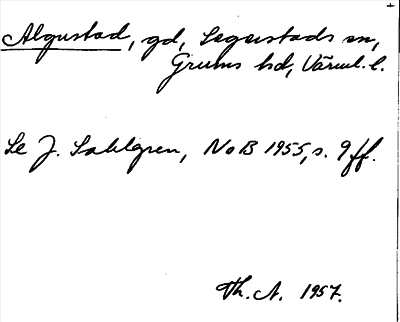 Algustad, gd, Segerstads sn,
Grums hd, Värml. l.
Se J. Sahlgren, NoB 1955, s. 9 ff.
Th. A. 1957.